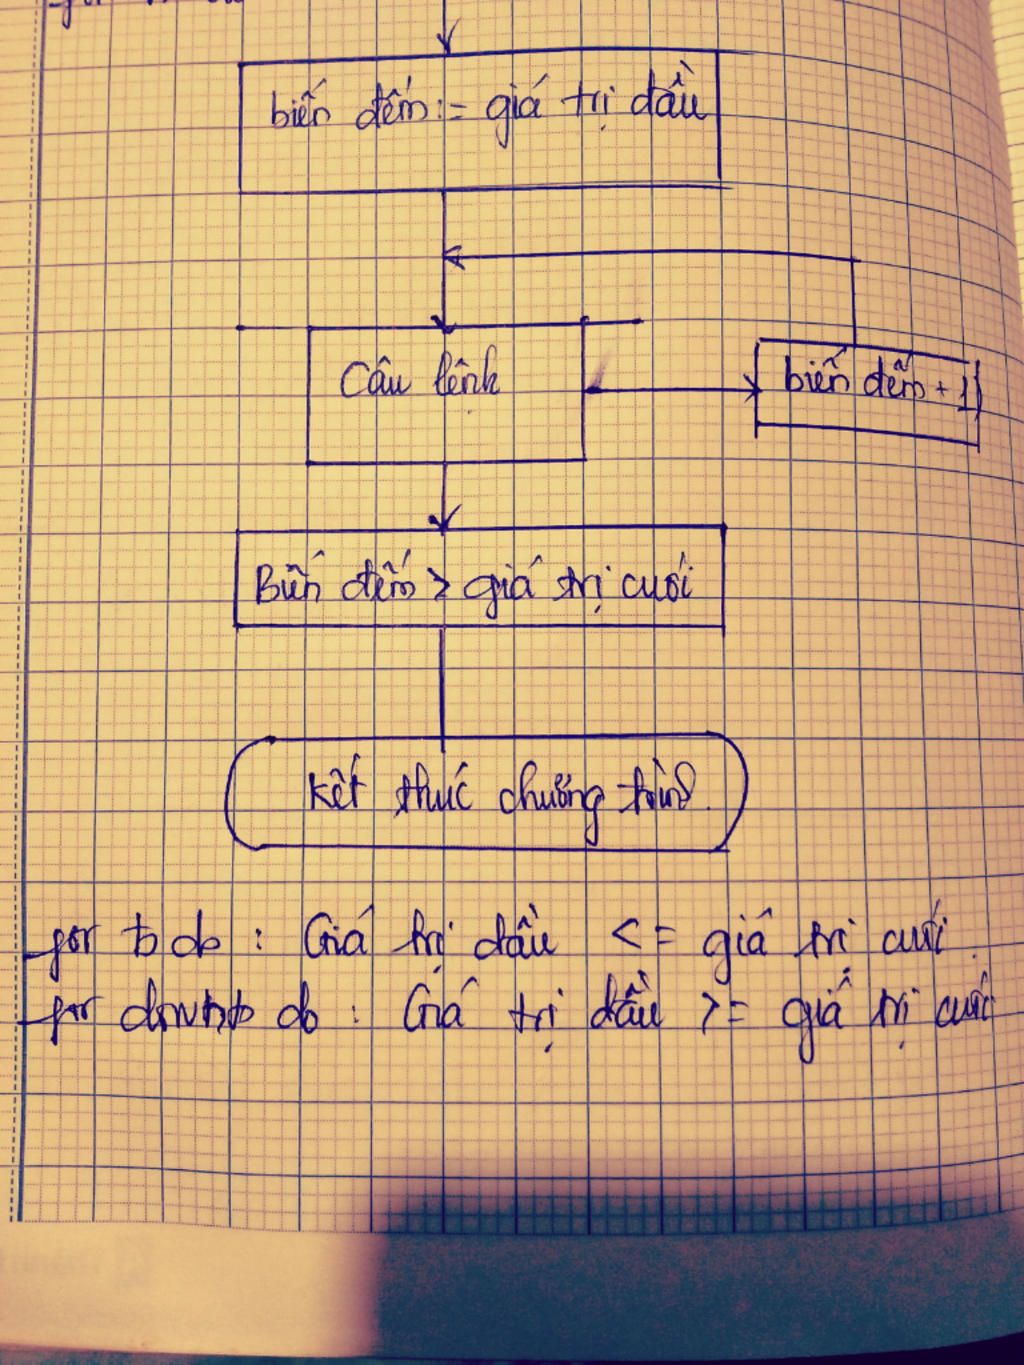 biến đếm := giá trị đầu
Câu lệnh
biến đếm + 1
Biến đếm > giá trị cuối
Kết thúc chương trình.
for to do : Giá trị đầu <= giá trị cuối.
for downto do : Giá trị đầu >= giá trị cuối